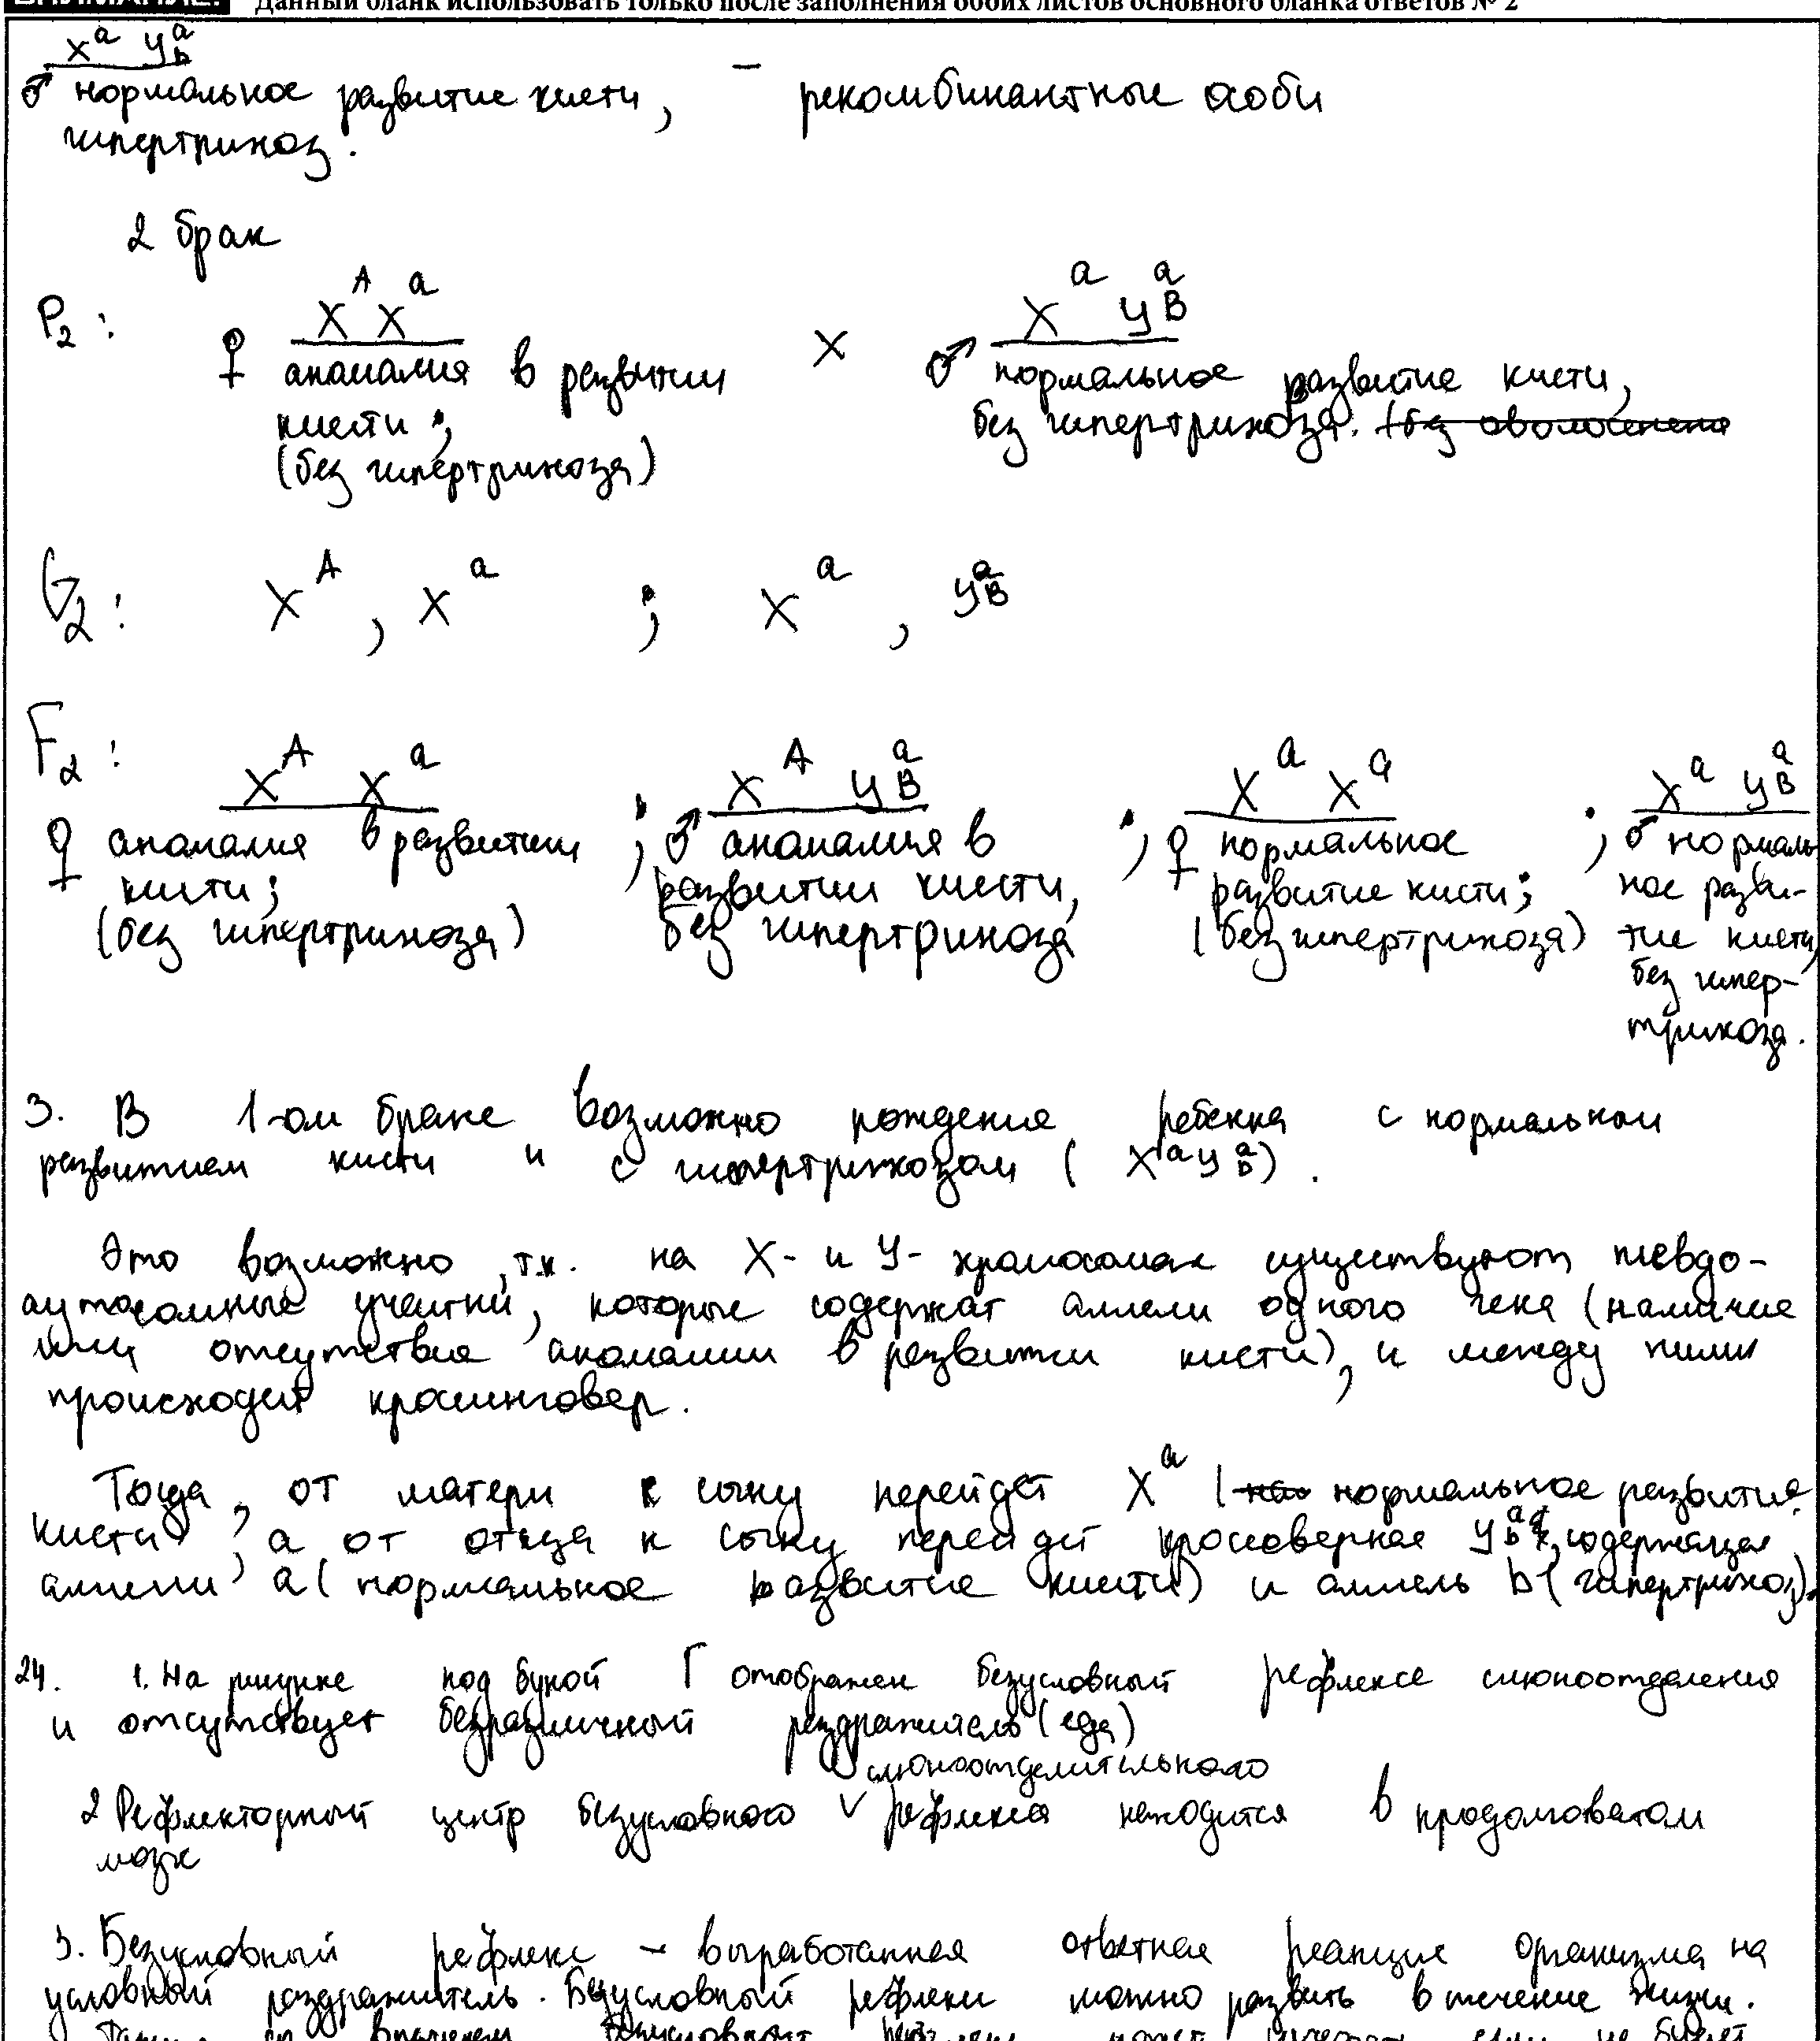 ВНИМАНИЕ! Данный бланк использовать только после заполнения обоих листов основного бланка ответов № 2
X^a Y^a_b
♂ нормальное развитие кисти, – рекомбинантные особи
гипертрихоз.
2 брак
P₂: ♀ X^A X^a × ♂ X^a Y^a_B
аномалия в развитии нормальное развитие кисти,
кисти; без гипертрихоза.
(без гипертрихоза)
G₂: X^A, X^a ; X^a, Y^a_B
F₂: X^A X^a ; X^A Y^a_B ; X^a X^a ; X^a Y^a_B
♀ аномалия в развитии ; ♂ аномалия в ; ♀ нормальное ; ♂ нормаль
кисти; развитии кисти, развитие кисти; ное разви-
(без гипертрихоза) без гипертрихоза (без гипертрихоза) тие кисти,
без гипер-
трихоза.
3. В 1-ом браке возможно рождение ребенка с нормальном
развитием кисти и с гипертрихозом (X^a Y^a_b).
Это возможно, т.к. на X- и Y- хромосомах существуют псевдо-
аутосомные участки, которые содержат аллели одного гена (наличие
или отсутствия аномалии в развитии кисти), и между ними
происходит кроссинговер.
Тогда, от матери к сыну перейдет X^a (нормальное развитие
кисти), а от отца к сыну перейдет кроссоверная Y^a_b, содержащая
аллели a (нормальное развитие кисти) и аллель b (гипертрихоз).
24. 1. На рисунке под букой Г отображен безусловный рефлексе слюноотделения
и отсутствует безразличный раздражитель (еда)
слюноотделительного
2 Рефлекторный центр безусловного ∨ рефлекса находится в продолговатом
мозге
3. Безусловный рефлекс – выработанная ответная реакция организма на
условный раздражитель. Безусловный рефлекс можно развить в течение жизни.